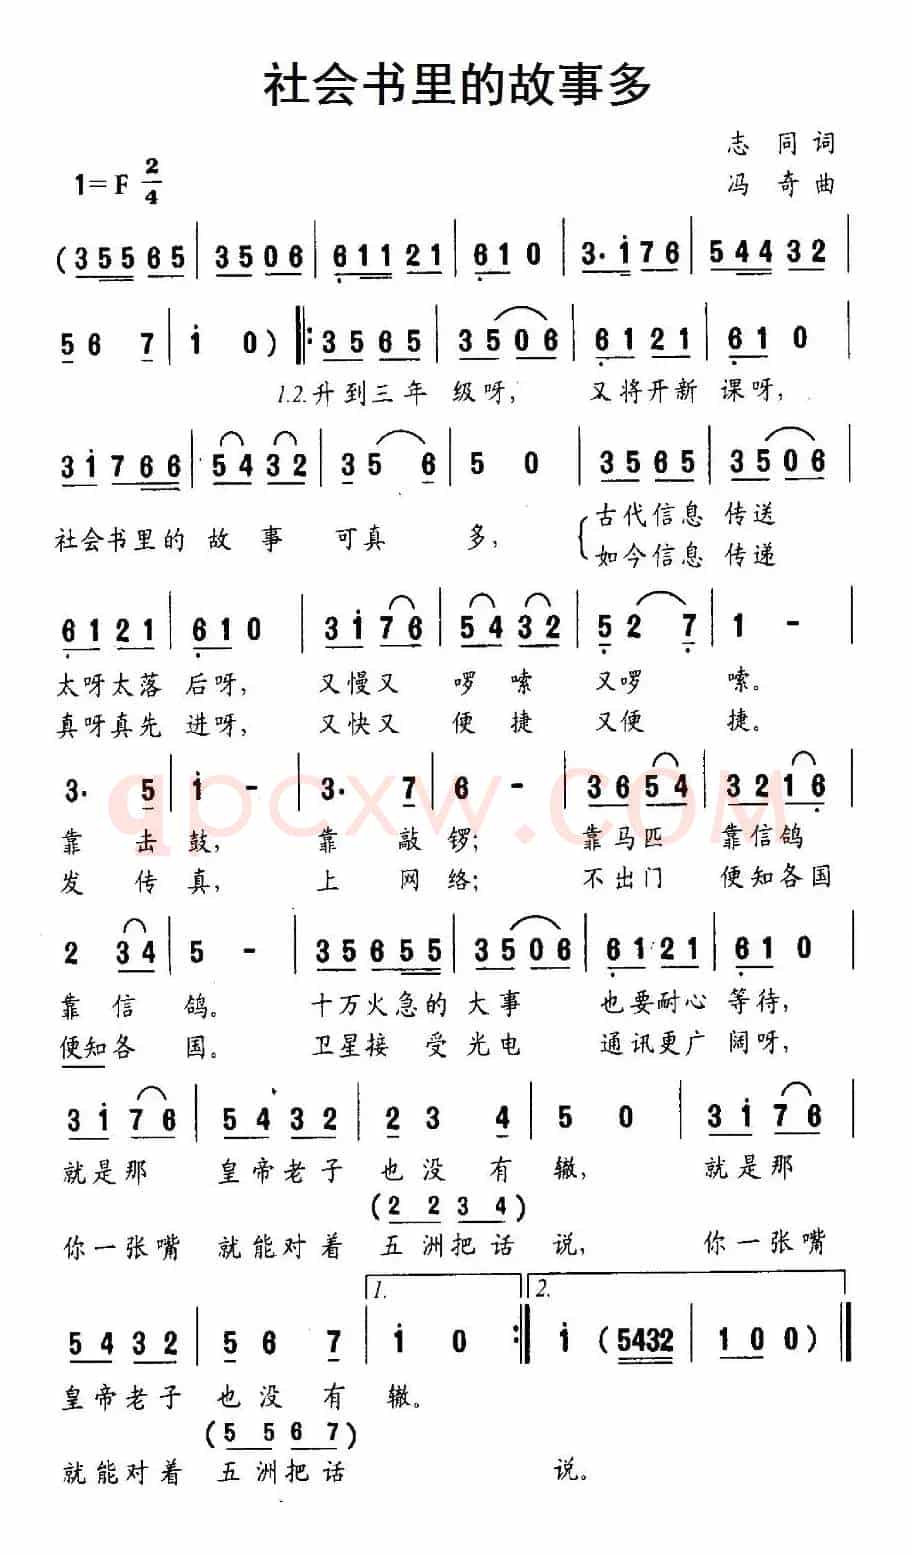 社会书里的故事多
志 同 词
1=F 2/4
冯 奇 曲
( 3 5 5 6 5 | 3 5 0 6 | 6 1 1 2 1 | 6 1 0 | 3· i 7 6 | 5 4 4 3 2 |
5 6 7 | i 0 ) |: 3 5 6 5 | 3 5 0 6 | 6 1 2 1 | 6 1 0 |
1.2.升到三年 级呀, 又将开新 课呀,
3 i 7 6 6 | 5 4 3 2 | 3 5 6 | 5 0 | 3 5 6 5 | 3 5 0 6 |
社会书里的 故 事 可真 多, 古代信息 传送
如今信息 传递
6 1 2 1 | 6 1 0 | 3 i 7 6 | 5 4 3 2 | 5 2 7 | 1 - |
太呀太落 后呀, 又慢又 啰 嗦 又啰 嗦。
真呀真先 进呀, 又快又 便 捷 又便 捷。
3· 5 | i - | 3· 7 | 6 - | 3 6 5 4 | 3 2 1 6 |
qpcxw.COM
靠 击 鼓, 靠 敲 锣; 靠马匹 靠信鸽
发 传 真, 上 网 络; 不出门 便知各国
2 3 4 | 5 - | 3 5 6 5 5 | 3 5 0 6 | 6 1 2 1 | 6 1 0 |
靠 信 鸽。 十万火急的 大事 也要耐心 等待,
便知各 国。 卫星接 受 光电 通讯更广 阔呀,
3 i 7 6 | 5 4 3 2 | 2 3 4 | 5 0 | 3 i 7 6 |
就是那 皇帝老子 也没 有 辙, 就是那
( 2 2 3 4 )
你一张嘴 就能对着 五洲把话 说, 你一张嘴
1. 2.
5 4 3 2 | 5 6 7 | i 0 :| i ( 5432 | 1 0 0 ) |
皇帝老子 也没有 辙。
( 5 5 6 7 )
就能对着 五洲把话 说。